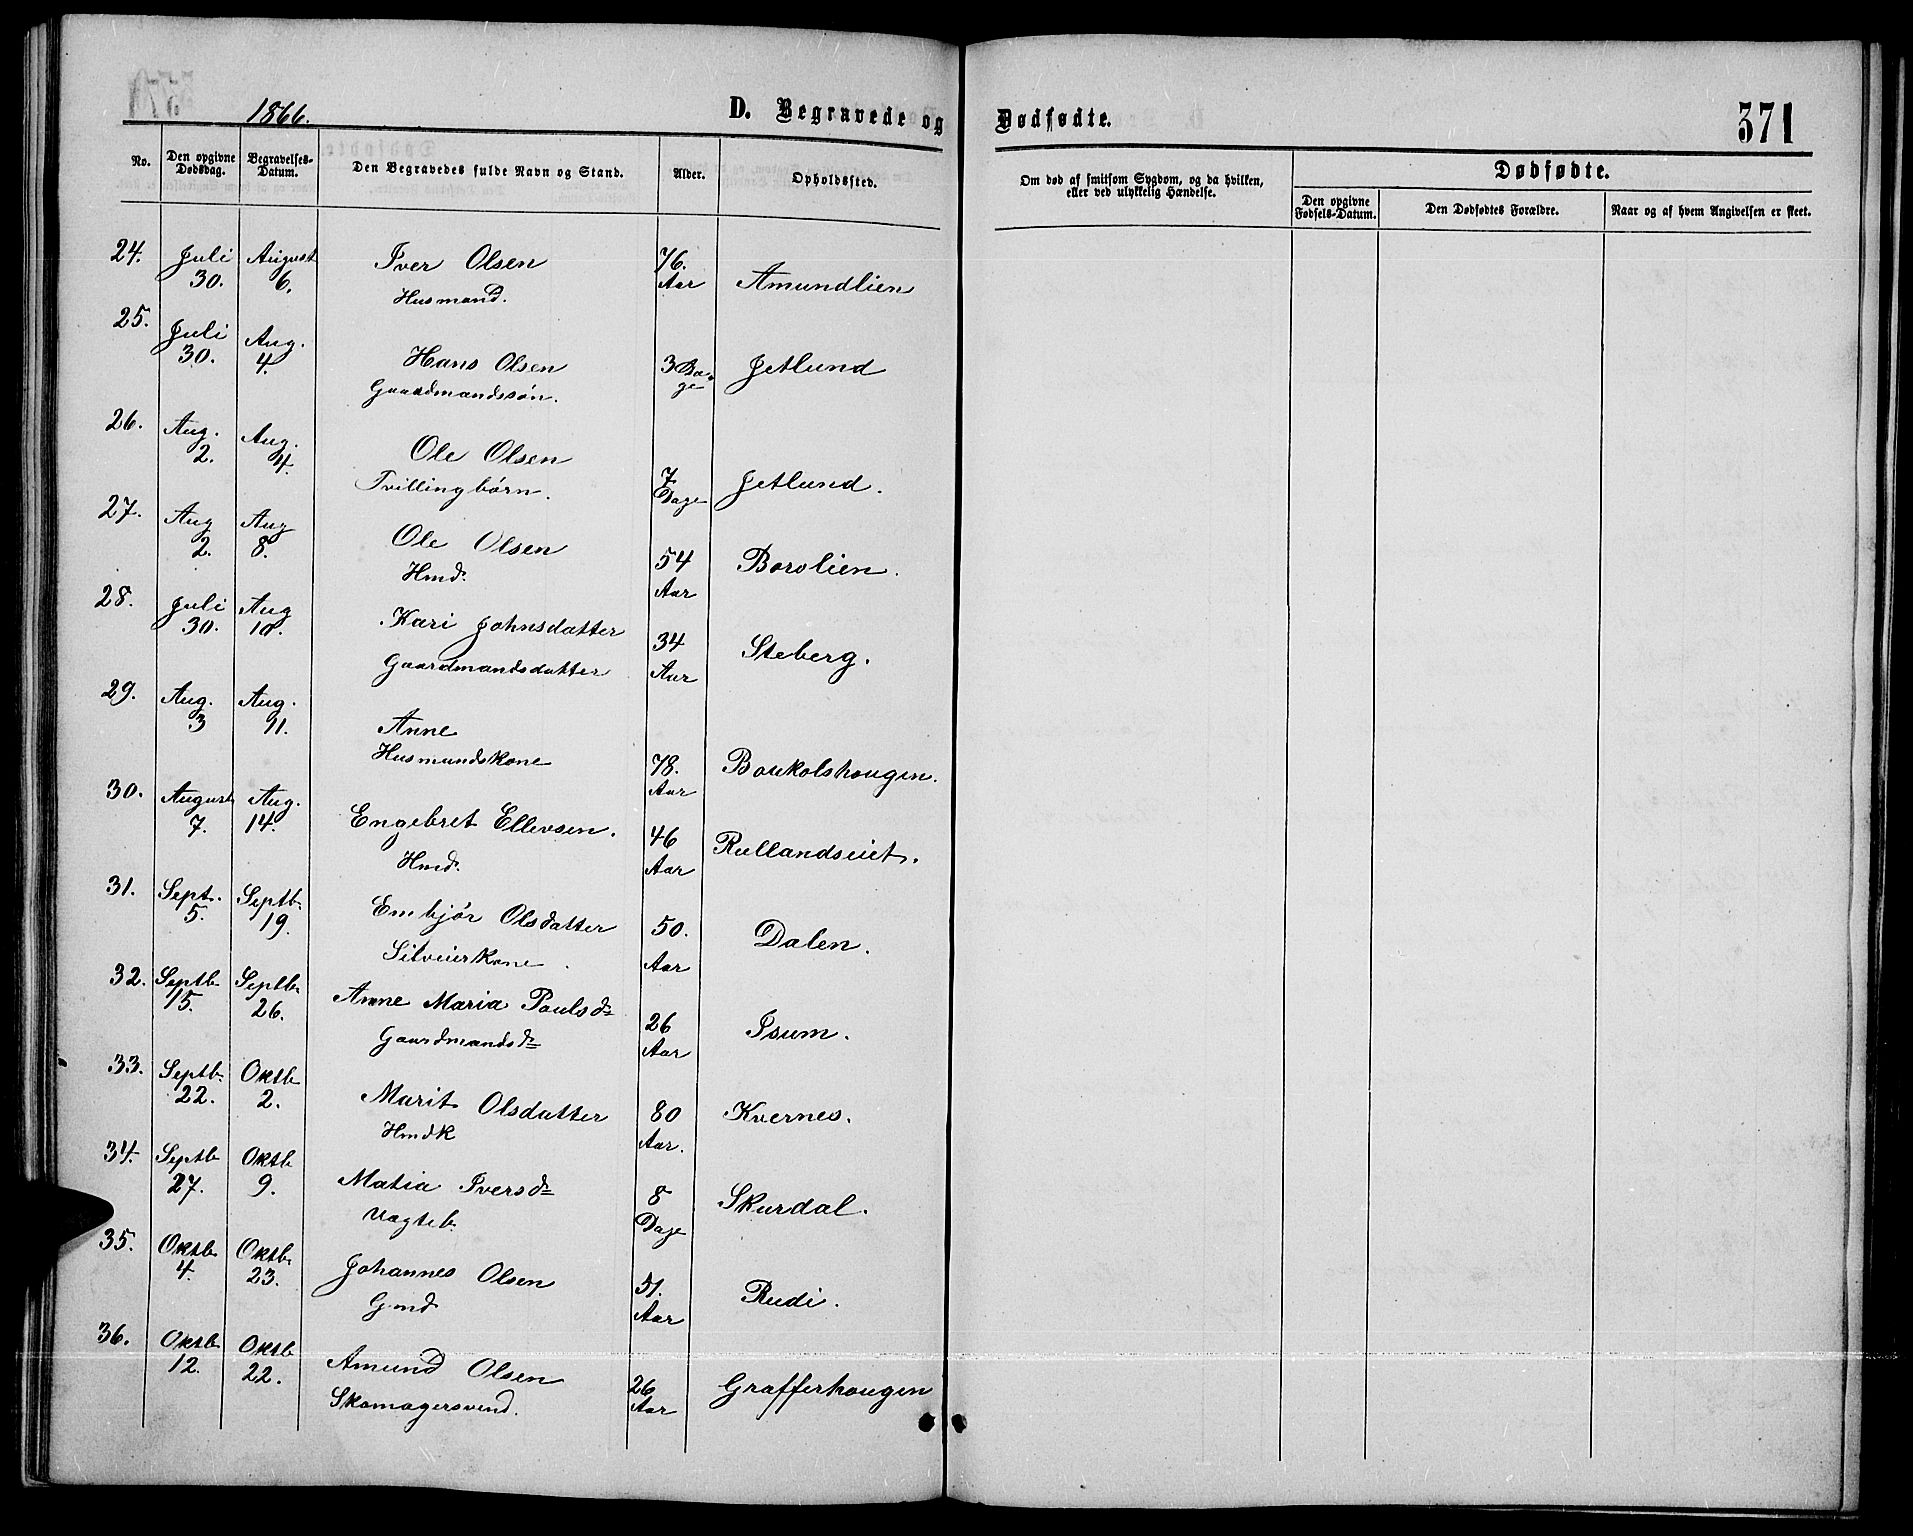 1866.
D. Begravede og Dødfødte.
371
No.
Den opgivne Dødsdag.
Begravelses-Datum.
Den Begravedes fulde Navn og Stand.
Alder.
Opholdssted.
Om død af smitsom Sygdom, og da hvilken,
eller ved ulykkelig Hændelse.
Dødfødte.
Den opgivne Fødsels-Datum.
Den Dødfødtes Forældre.
Naar og af hvem Angivelsen er skeet.
24. Juli 30. August 6. Iver Olsen 76. Aar Amundlien
Husmand.
25. Juli 30. Aug. 4. Hans Olsen 3 Da-ge Jetlund
Gaardmandssøn.
26. Aug. 2. Aug. 4. Ole Olsen 7 Dage Jetlund.
Tvillingbørn.
27. Aug 2. Aug 8. Ole Olsen 54 Aar Borolien.
Hmd.
28. Juli 30. Aug 10. Kari Johnsdatter 34 Aar Steberg.
Gaardmandsdatter
29. Aug. 3 Aug. 11. Anne 78. Aar Boukolshougen.
Husmandskone
30. August 7. Aug. 14. Engebret Ellevsen. 46 Aar Rullandseiet.
Hmd.
31. Sept. 5. Septb. 19. Embjør Olsdatter 50. Aar Dalen.
Selveierkone
32. Septb 15. Septb. 26. Anne Maria Paulsd= 26 Aar Isum.
Gaardmandsd=
33. Septb. 22. Oktb 2. Marit Olsdatter 80 Aar. Kvernes.
Hmdk
34. Septb 27. Oktb 9. Matia Iversd= 8 Dage Skurdal.
Uægteb.
35. Oktb 4. Oktb. 23. Johannes Olsen 51. Aar Rudi.
Gmd
36. Oktb 12. Oktb 22. Amund Olsen 26 Aar Grafferhougen
Skomagersvend.